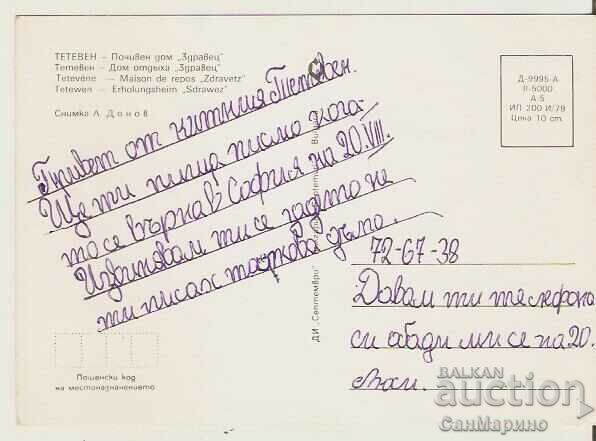 ТЕТЕВЕН – Почивен дом „Здравец"
Тетевен – Дом отдыха „Здравец"
Tetevene – Maison de repos „Zdravetz"
Tetewen – Erholungsheim „Sdrawez"
Снимка Л. Донов
Д-9995-А
II-5000
А-5
ИП 200 И/79
Цена 10 cm.
Привет от китния Тетевен.
Ще ти пиша писмо кога-
то се върна в София на 20.VIII.
Извинявам ти се задето не
ти писах толкова дълго.
ДИ „Септември"
72-67-38
Давам ти телефона
си обади ми се на 20.
Пощенски код
на местоназначението
BALKAN
auction
СанМарино